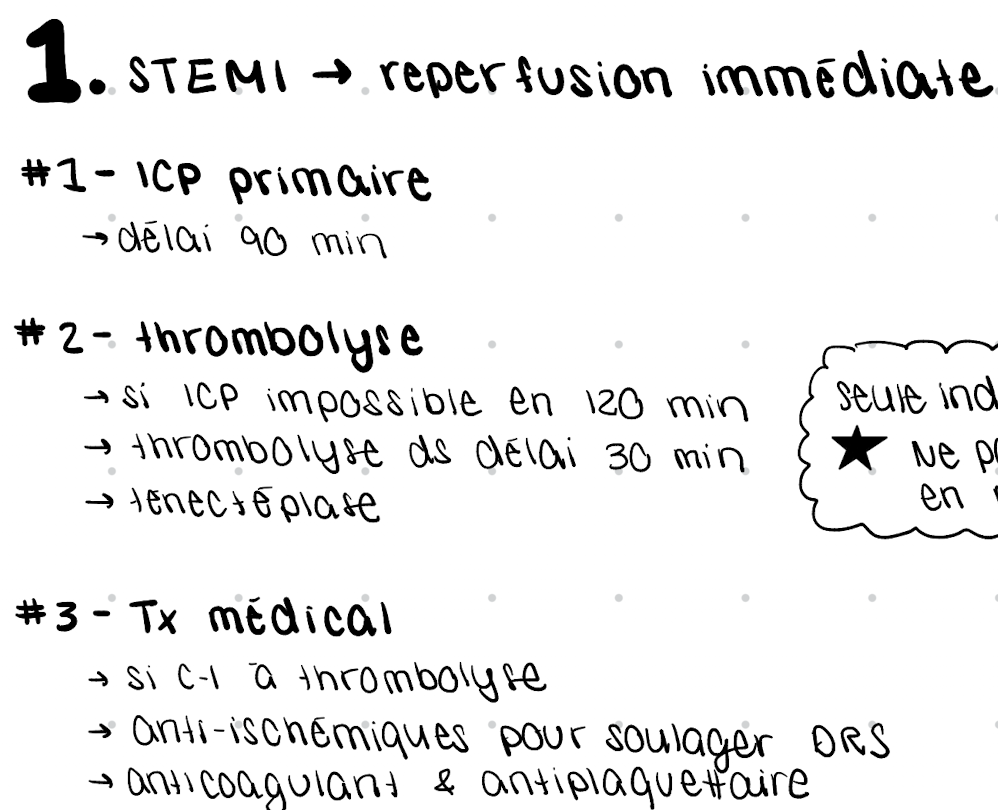 1. STEMI → reperfusion immédiate
#1- ICP primaire
→ délai 90 min
#2- thrombolyse
→ si ICP impossible en 120 min
→ thrombolyse ds délai 30 min
→ tenectéplase
seule ind
★ Ne p
en
#3- Tx médical
→ si C-I à thrombolyse
→ anti-ischémiques pour soulager DRS
→ anticoagulant & antiplaquettaire